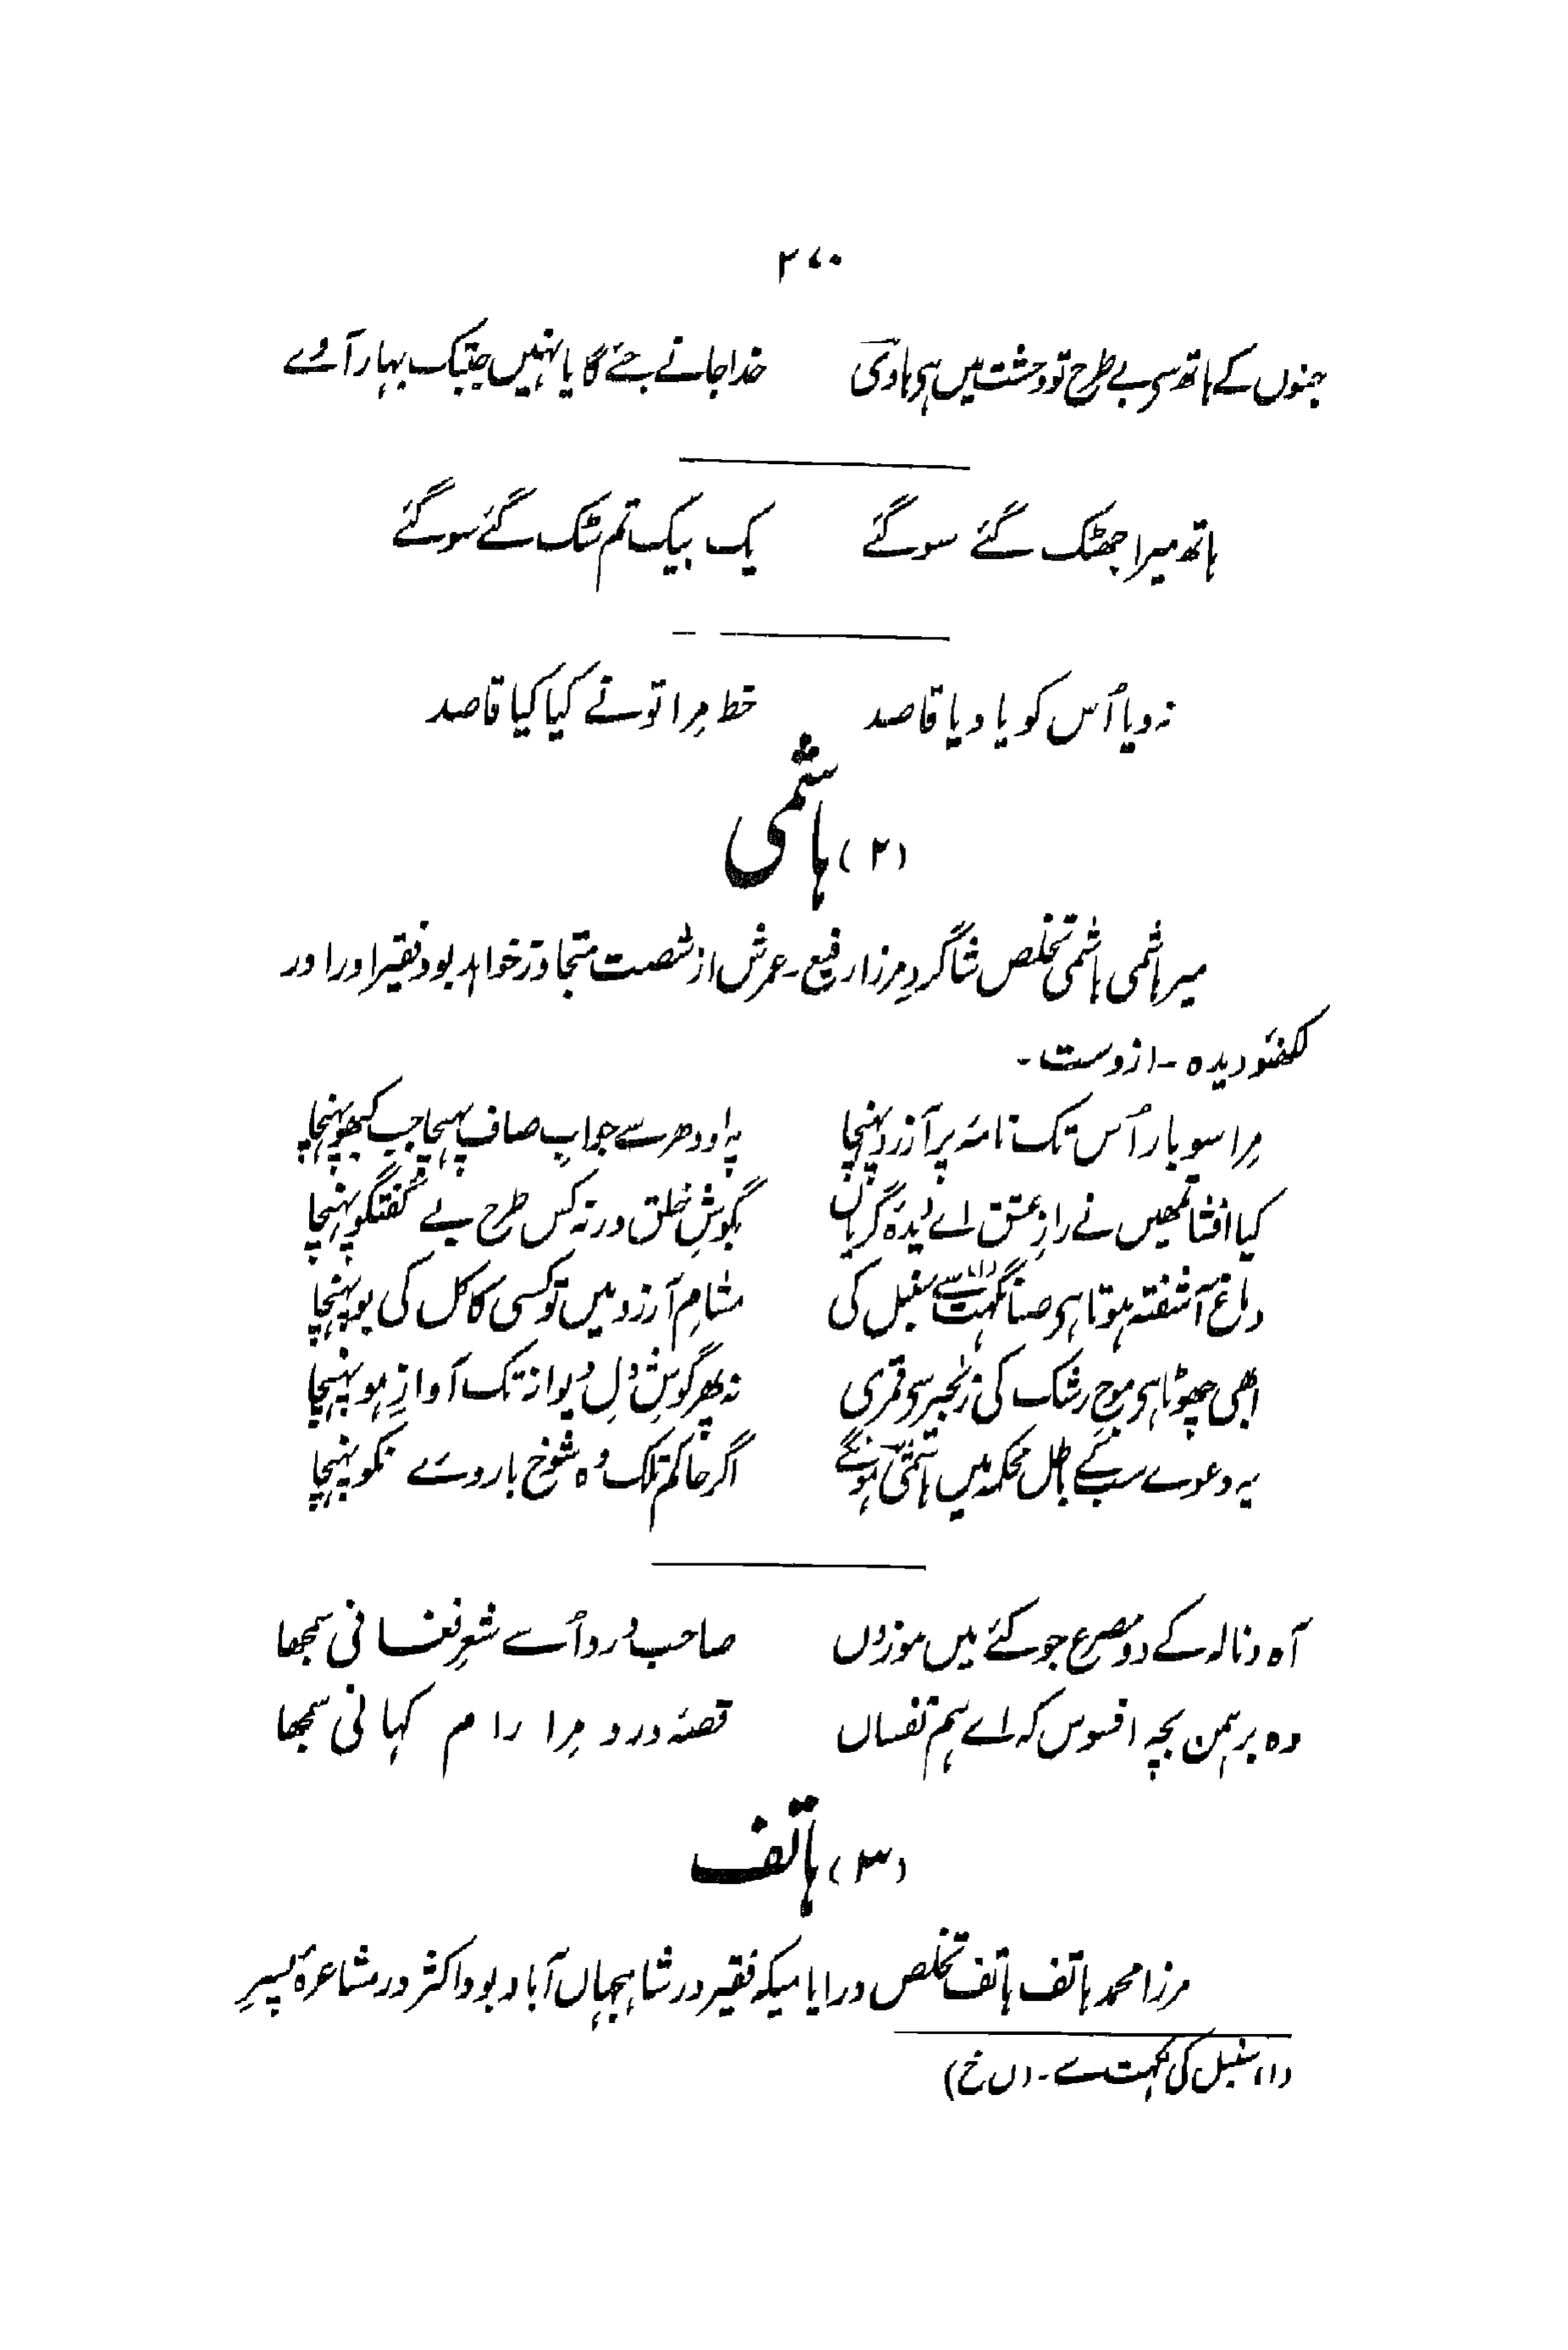 ۲۷۰
جنوں کے ہاتھ سی بے طرح تو وحشت میں ہی ہادی خدا جانے جئے گا یا نہیں جبتک بہار آوے
ہاتھ میرا جھٹک گئے سو گئے یک بیک تم سٹک گئے سو گئے
نہ دیا اُس کو یا دیا قاصد خط مِرا تونے کیا کیا قاصد
(۲) ہاشمی
میر ہاشمی ہاشمی تخلص شاگردِ مرزا رفیع۔ عمرش از شصت متجاوز خواہد بود فقیر اورا در
لکھنؤ دیدہ۔ ازوست۔
مِرا سو بار اُس تک نامۂ پر آرزو پہنچا پہ اودھر سے جوابِ صاف پہنچا جب کبھو پہنچا
کیا افشا تمھیں نے رازِ عشق اے دیدۂ گریاں بگوشِ خلق ورنہ کس طرح بے گفتگو پہنچا
دماغ آشفتہ ہوتا ہی صبا نگہت سے (۱) سنبل کی مشامِ آرزو میں تو کسی کاکل کی بو پہنچا
ابھی چھوٹا ہی موجِ رشک کی زنجیر سی قمری نہ پھر گوشِ دلِ دیوانہ تک آوازِ ہو پہنچا
یہ دعوے سب کے باطل محکمہ میں ہاشمی ہونگے اگر حاکم تلک وہ شوخ با روے نکو پہنچا
آہ و نالہ کے دو مصرع جو کئے میں موزوں صاحبِ درد اُسے شعرِ فغانی سمجھا
وہ برہمن بچہ افسوس کہ اے ہم نفساں قصۂ درد مِرا رام کہانی سمجھا
(۳) ہاتف
مرزا محمد ہاتف ہاتف تخلص در ایامیکہ فقیر در شاہجہاں آباد بود اکثر در مشاعرۂ پسرِ
(۱) سنبل کی نگہت سے۔ (ن خ)